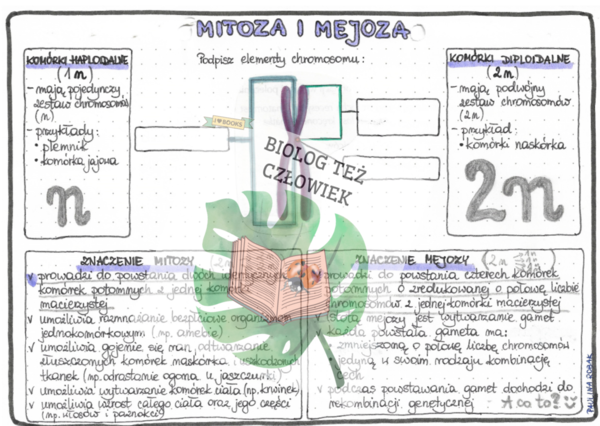 MITOZA I MEJOZA
KOMÓRKI HAPLOIDALNE
(1n)
- mają pojedynczy
zestaw chromosomów
(n)
- przykłady:
• plemnik
• komórka jajowa
n
Podpisz elementy chromosomu:
I ♥ BOOKS
BIOLOG TEŻ
CZŁOWIEK
KOMÓRKI DIPLOIDALNE
(2n)
- mają podwójny
zestaw chromosomów
(2n)
- przykład:
• komórki naskórka
2n
ZNACZENIE MITOZY
v prowadzi do powstania dwóch identycznych
komórek potomnych z jednej komórki
macierzystej
v umożliwia rozmnażanie bezpłciowe organizmom
jednokomórkowym (np. amebie)
v umożliwia gojenie się ran, odtwarzanie
złuszczonych komórek naskórka i uszkodzonych
tkanek (np. odrastanie ogona u jaszczurki)
v umożliwia wytwarzanie komórek ciała (np. krwinek)
v umożliwia wzrost całego ciała oraz jego części
(np. włosów i paznokci)
ZNACZENIE MEJOZY
v prowadzi do powstania czterech komórek
potomnych o zredukowanej o połowę liczbie
chromosomów z jednej komórki macierzystej
v istotą mejozy jest wytwarzanie gamet
każda powstała gameta ma:
• zmniejszoną o połowę liczbę chromosomów
• jedyną w swoim rodzaju kombinację
cech
v podczas powstawania gamet dochodzi do
rekombinacji genetycznej
A co to?